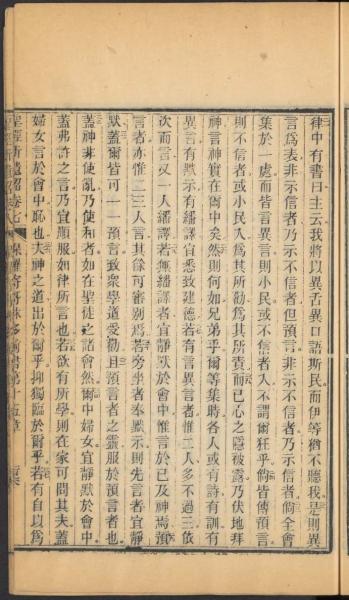 律中有書曰主云我將以異舌異口語斯民而伊等猶不聽我是則異
言爲表非示信者乃示不信者但預言非示不信者乃示信者倘全會
集於一處而皆言異言則小民或不信者入不謂爾狂乎倘皆傳預言
則不信者或小民入爲其所勸爲其所責而己心之隱被露乃伏地拜
神言神實在爾中矣然則何如兄弟乎爾等集時各人或有詩有訓有
異言有默示有繙譯宜悉致建德若有言異言者惟二人多不過三依
次而言又一人繙譯若無繙譯者宜靜默於會中惟言於己及神焉預
言者亦惟二三人言其餘可審別焉若旁坐者奉默示則先言者宜靜
默蓋爾皆可一一預言致衆學道受勸且預言者之靈服於預言者也
蓋神非使亂乃使和者如在聖徒之諸會然爾中婦女宜靜默於會中
蓋弗許之言乃宜順服如律所言也若欲有所學則在家可問其夫蓋
婦女言於會中恥也夫神之道出於爾乎抑獨臨於爾乎若有自以爲
聖經新遺詔卷七